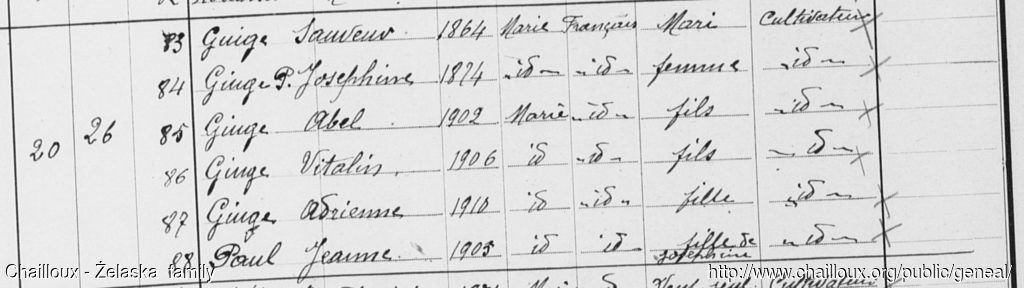 83 Ginge Sauveur 1864 Marie Français Mari Cultivateur
84 Ginge P. Josephine 1874 id id femme id
20 26 85 Ginge Abel 1902 Marie id fils id
86 Ginge Vitalis 1906 id id fils id
87 Ginge Adrienne 1910 id id fille id
88 Paul Jeanne 1905 id id fille de Josephine id
Cultivateur
Chailloux - Żelaska family
http://www.chailloux.org/public/geneal/